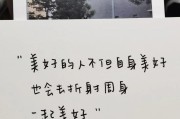 "美好的人不但自身美好
也会去折射周身
一起美好"